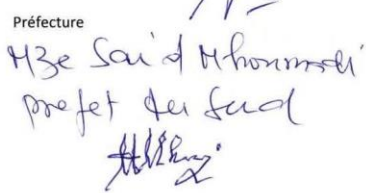 Préfecture
Mze Said Mhoumadi
prefet du Sud